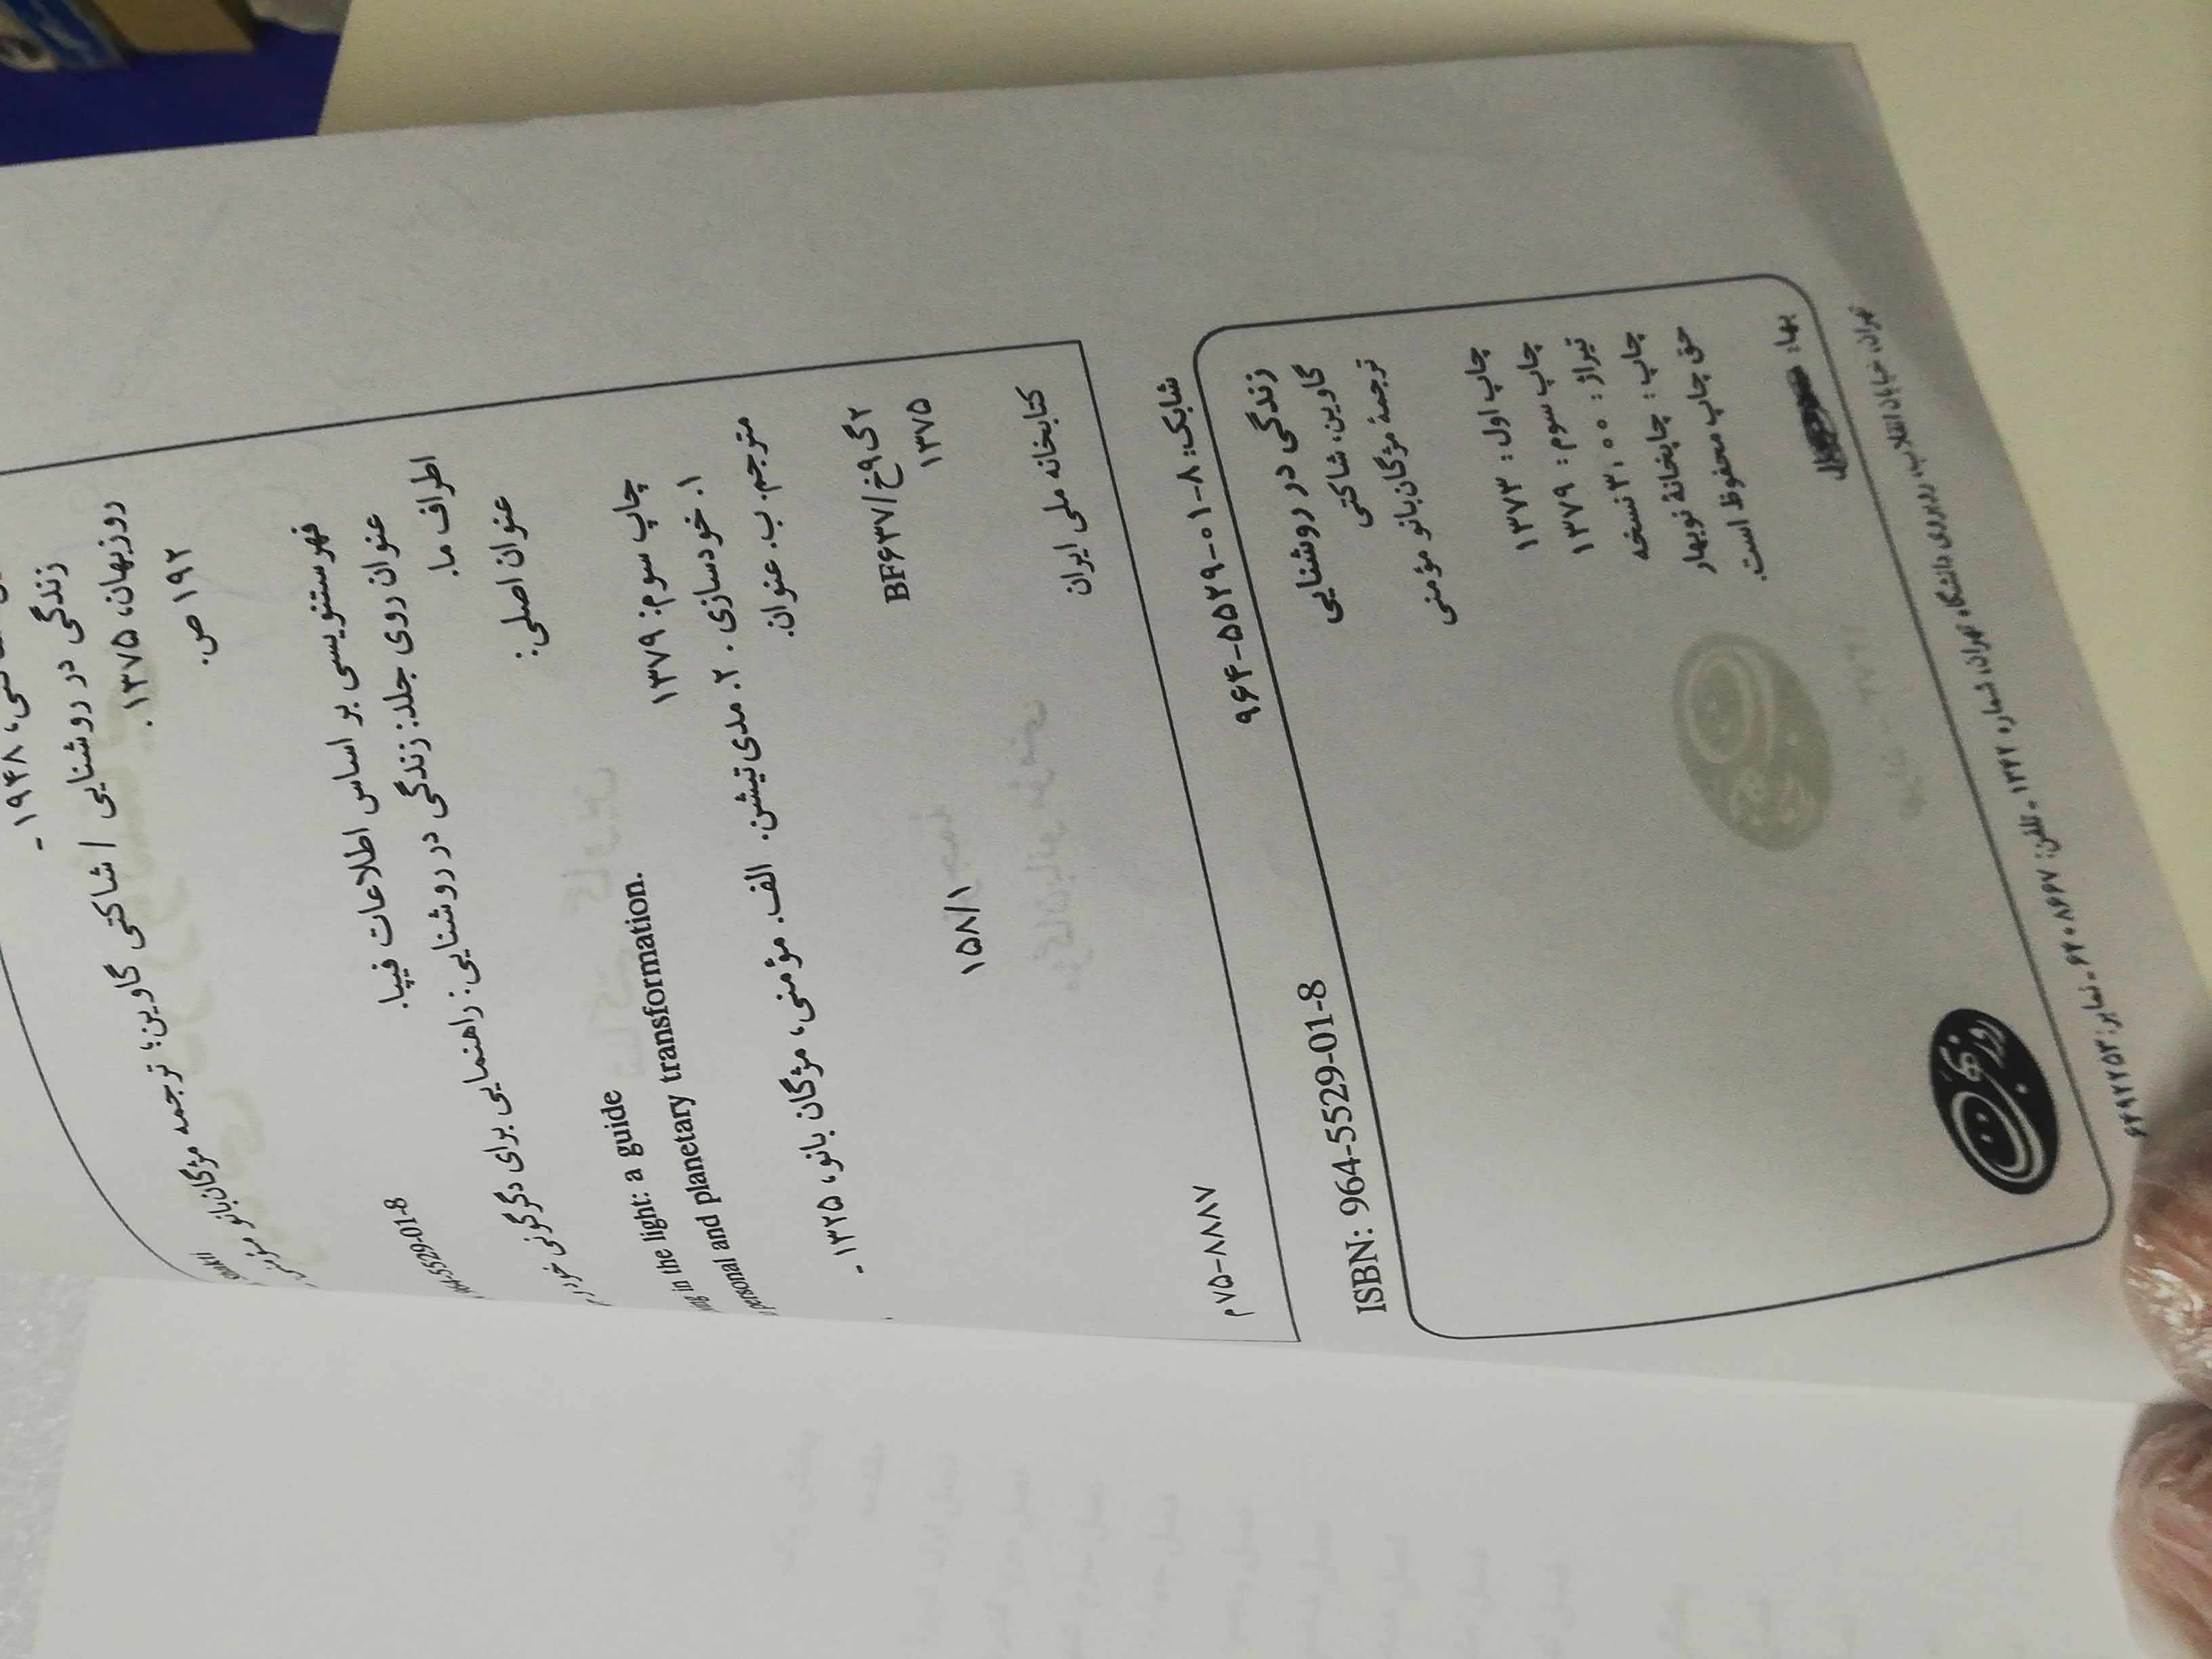 شاکتی، ۱۹۴۸ -
زندگی در روشنایی / شاکتی گاوین؛ ترجمه مژگان‌بانو مؤمنی
روزبهان، ۱۳۷۵.
۱۹۲ص.
5529-01-8
فهرستنویسی بر اساس اطلاعات فیپا.
عنوان روی جلد: زندگی در روشنایی: راهنمایی برای دگرگونی خود و
اطراف ما.
عنوان اصلی:
in the light: a guide
personal and planetary transformation.
چاپ سوم: ۱۳۷۹
۱. خودسازی. ۲. مدی‌تیشن. الف. مؤمنی، مژگان بانو، ۱۳۲۵ -
مترجم. ب. عنوان.
۲گ۹خ/BF۶۳۷
۱۵۸/۱
۱۳۷۵
کتابخانه ملی ایران
م۷۵-۸۸۸۷
شابک: ۸-۰۱-۵۵۲۹-۹۶۴
ISBN: 964-5529-01-8
زندگی در روشنایی
گاوین، شاکتی
ترجمهٔ مژگان‌بانو مؤمنی
چاپ اول: ۱۳۷۳
چاپ سوم: ۱۳۷۹
تیراژ: ۳۰۰۰ نسخه
چاپ: چاپخانهٔ نوبهار
حق چاپ محفوظ است.
بها:
روزبهان
تهران، خیابان انقلاب، روبروی دانشگاه تهران، شماره ۱۳۴۲ - تلفن: ۶۴۰۸۶۶۷ - نمابر: ۶۴۹۲۲۵۳